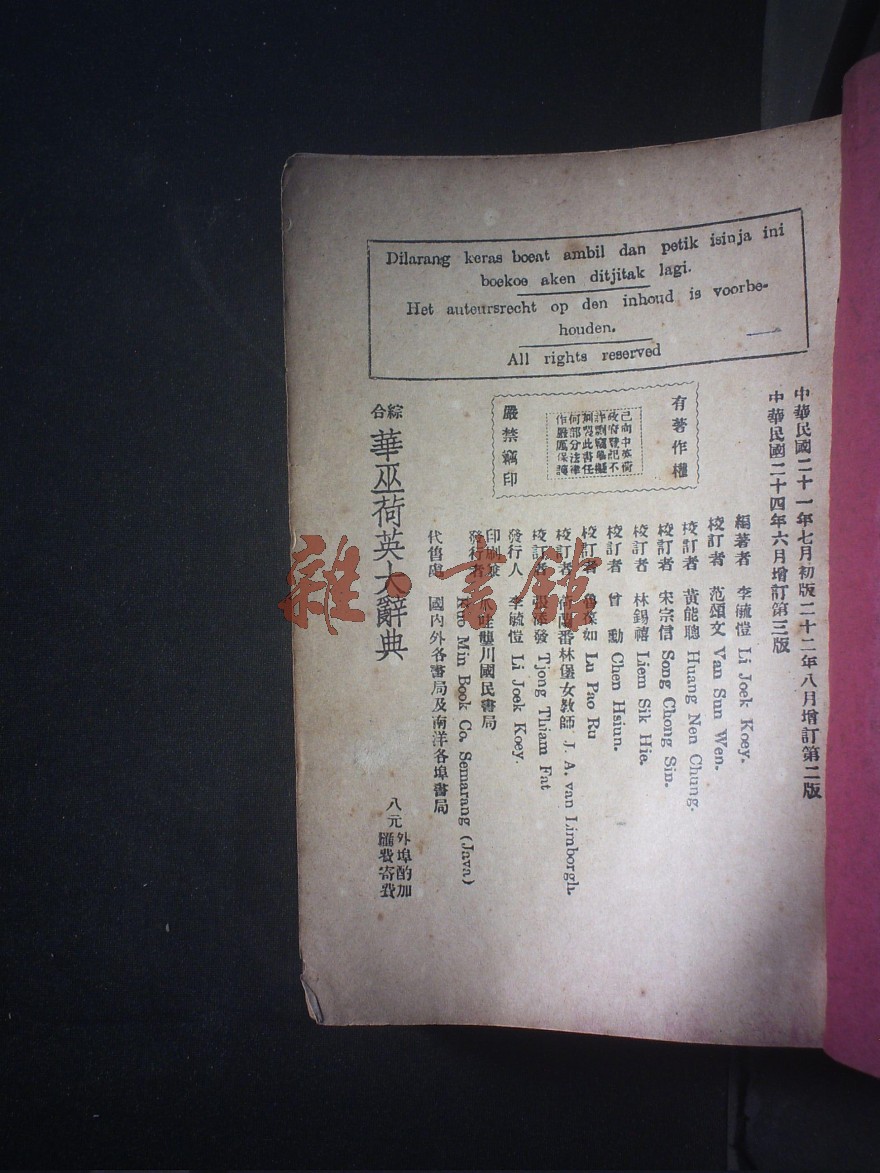 Dilarang keras boeat ambil dan petik isinja ini
boekoe aken ditjitak lagi.
Het auteursrecht op den inhoud is voorbe-
houden.
All rights reserved
有著作權
已向中英荷
政府登記不
許剽竊摹擬
何部分法律
作嚴厲保護
嚴禁竊印
中華民國二十一年七月初版二十二年八月增訂第二版
中華民國二十四年六月增訂第三版
編著者 李毓愷 Li Joek Koey.
校訂者 范頌文 Van Sun Wen.
校訂者 黃能聰 Huang Nen Chung.
校訂者 宋宗信 Song Chong Sin.
校訂者 林錫禧 Liem Sik Hie.
校訂者 曾勳 Chen Hsiun.
校訂者 如 Lu Pao Ru
校訂者 番林堡女教師 J. A. van Limborgh.
校訂者 張添發 Tjong Thiam Fat
發行人 李毓愷 Li Joek Koey.
印刷兼發行者 壟川國民書局
Kuo Min Book Co. Semarang (Java)
代售處 國內外各書局及南洋各埠書局
綜合 華巫荷英大辭典
八元 外埠酌加匯費寄費
雜·書館